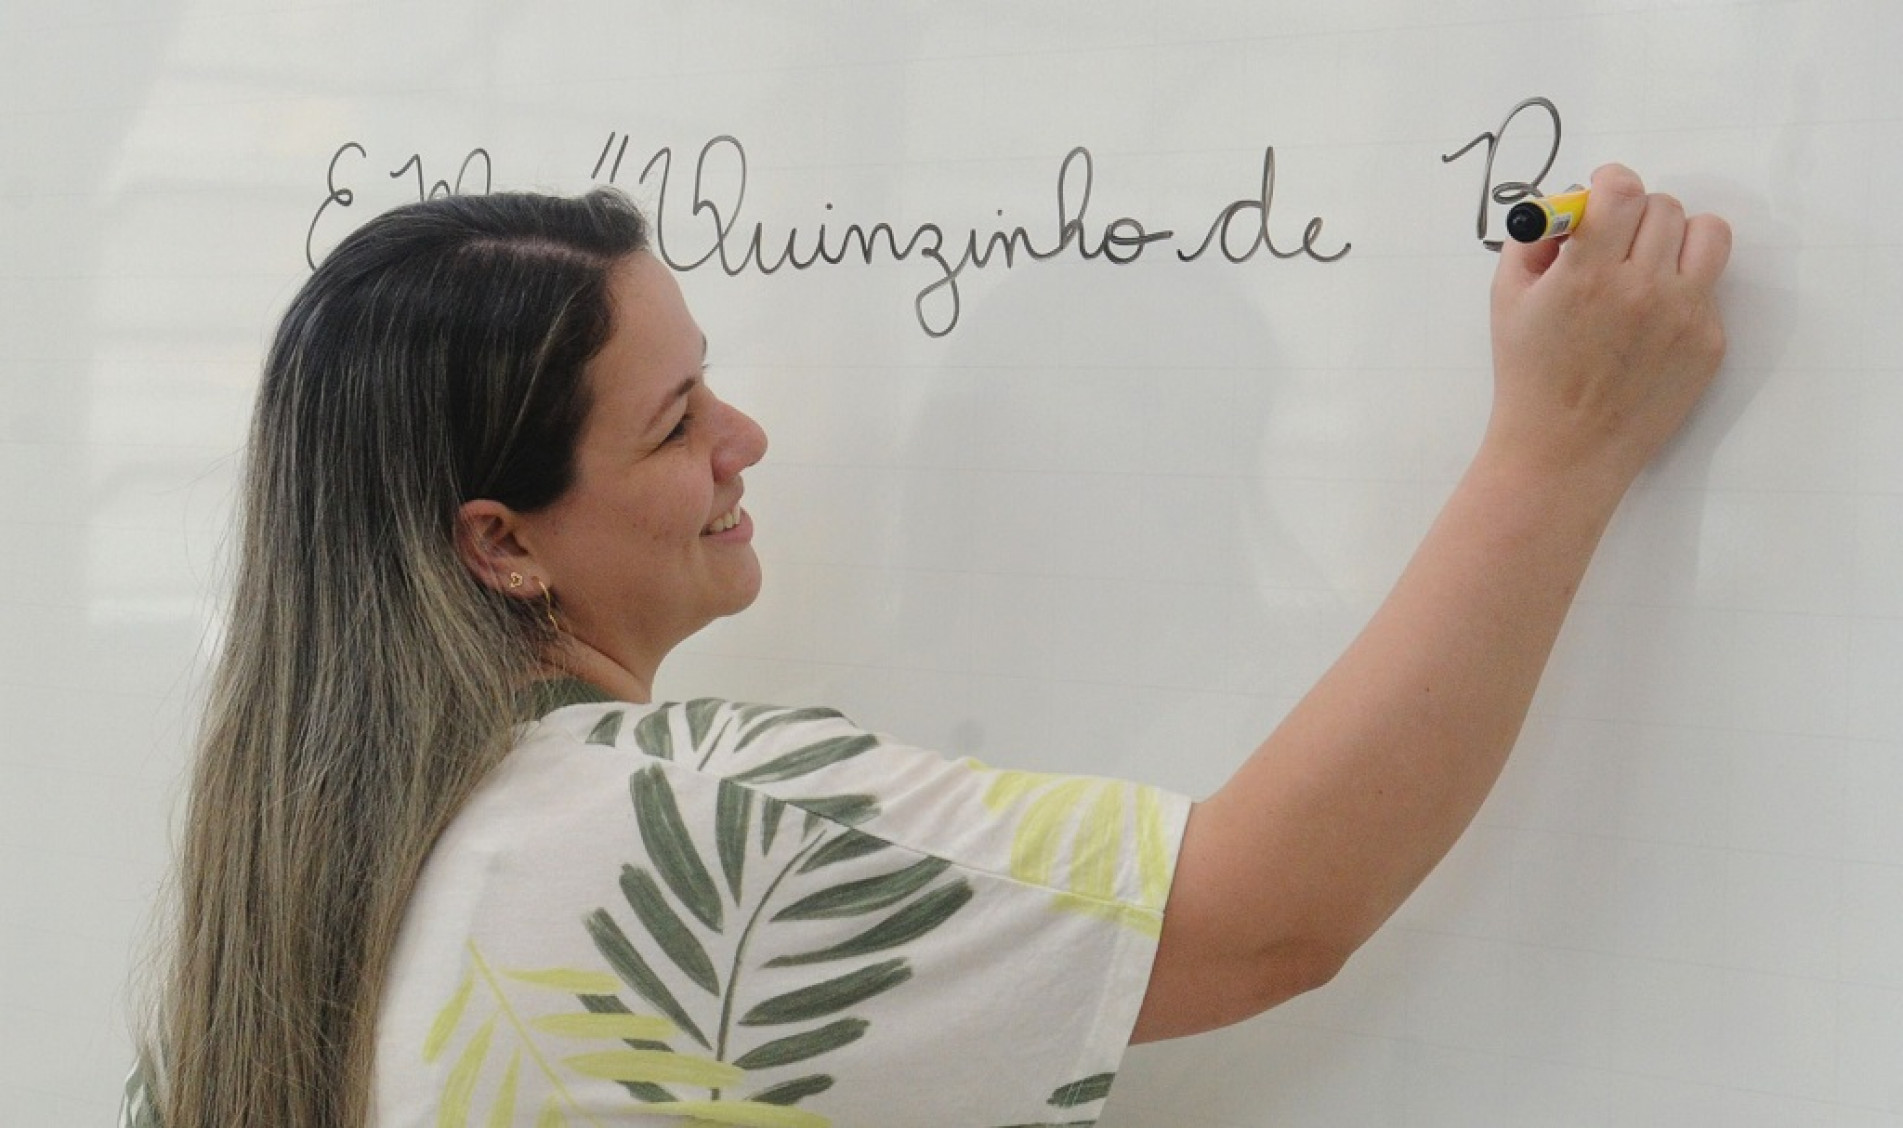 E.M. "Quinzinho de B